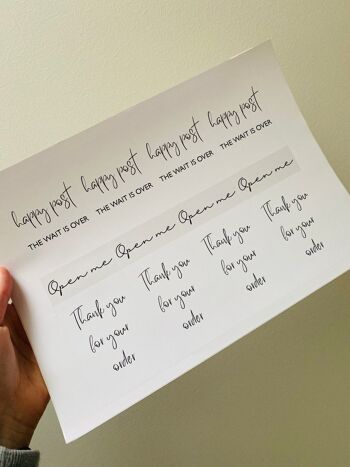 happy post happy post happy post happy post
THE WAIT IS OVER THE WAIT IS OVER THE WAIT IS OVER THE WAIT IS OVER
Open me Open me Open me Open me
Thank you Thank you Thank you Thank you
for your for your for your for your
order order order order